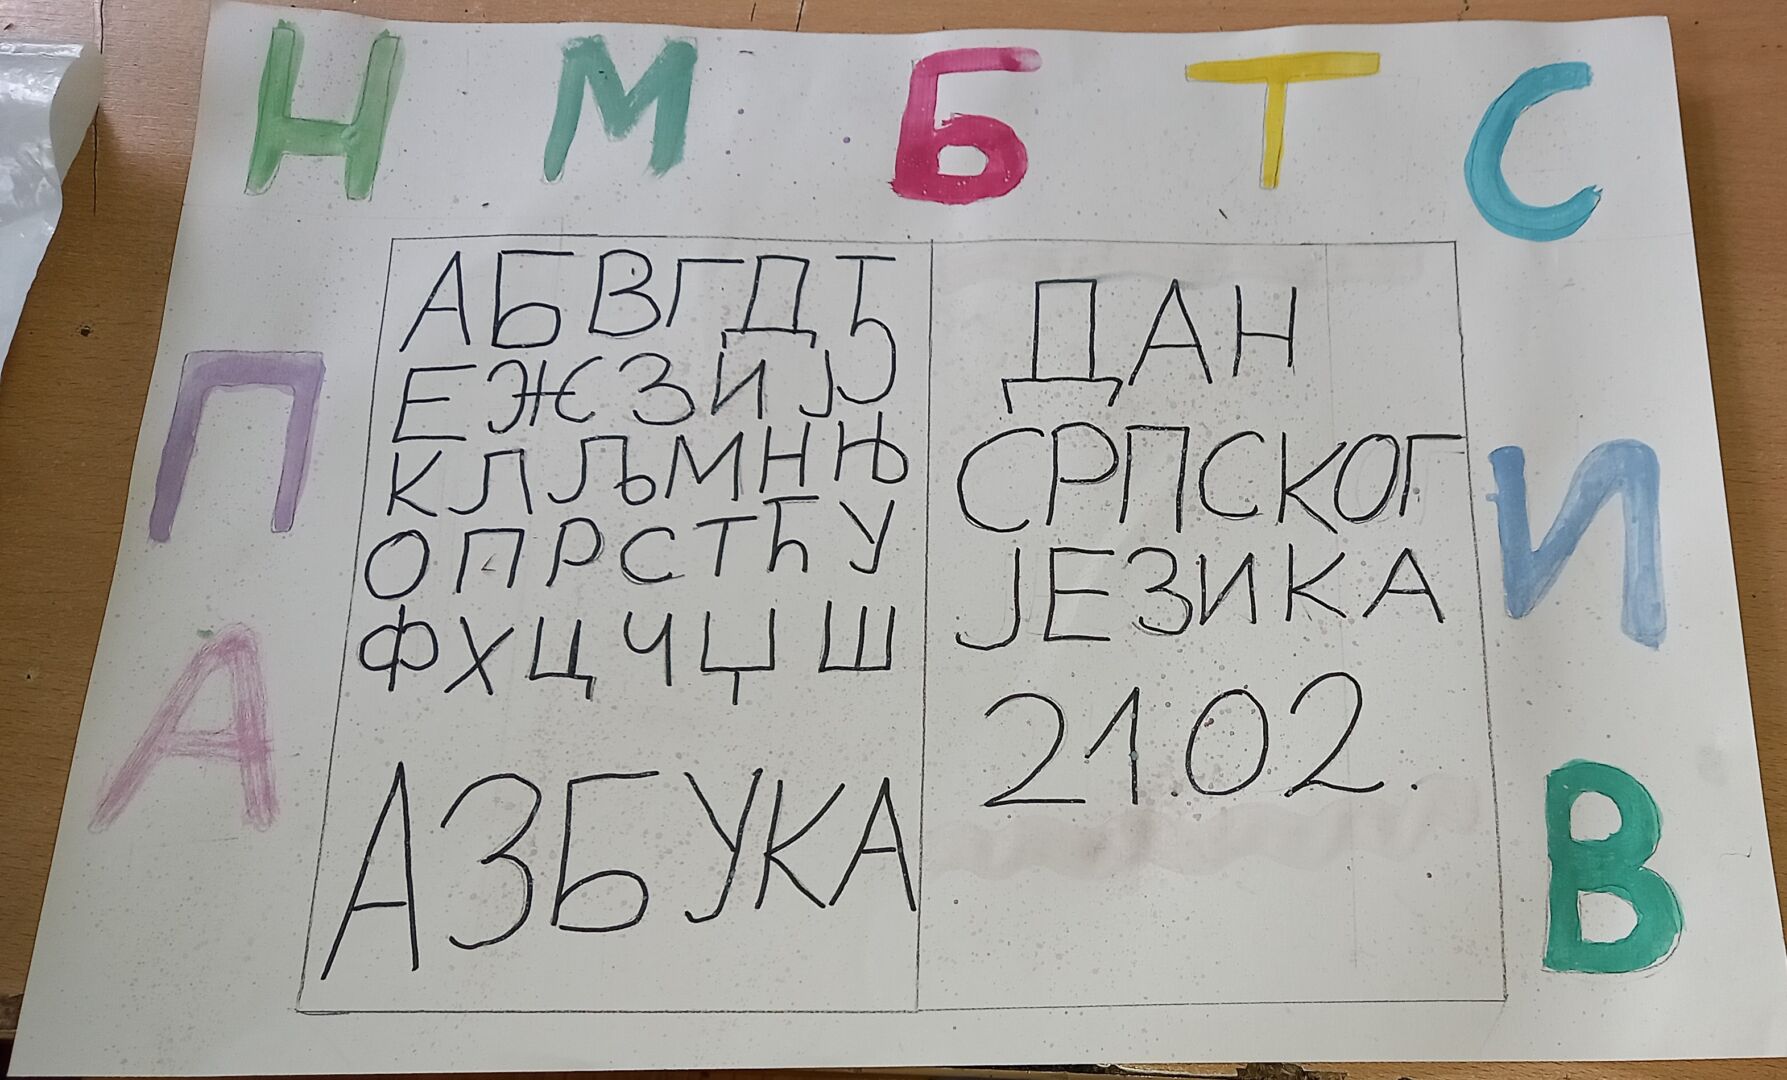 Н М Б Т С
П
А
И
В
А Б В Г Д Ђ
Е Ж З И Ј
К Л Љ М Н Њ
О П Р С Т Ћ У
Ф Х Ц Ч Џ Ш
АЗБУКА
ДАН
СРПСКОГ
ЈЕЗИКА
21.02.